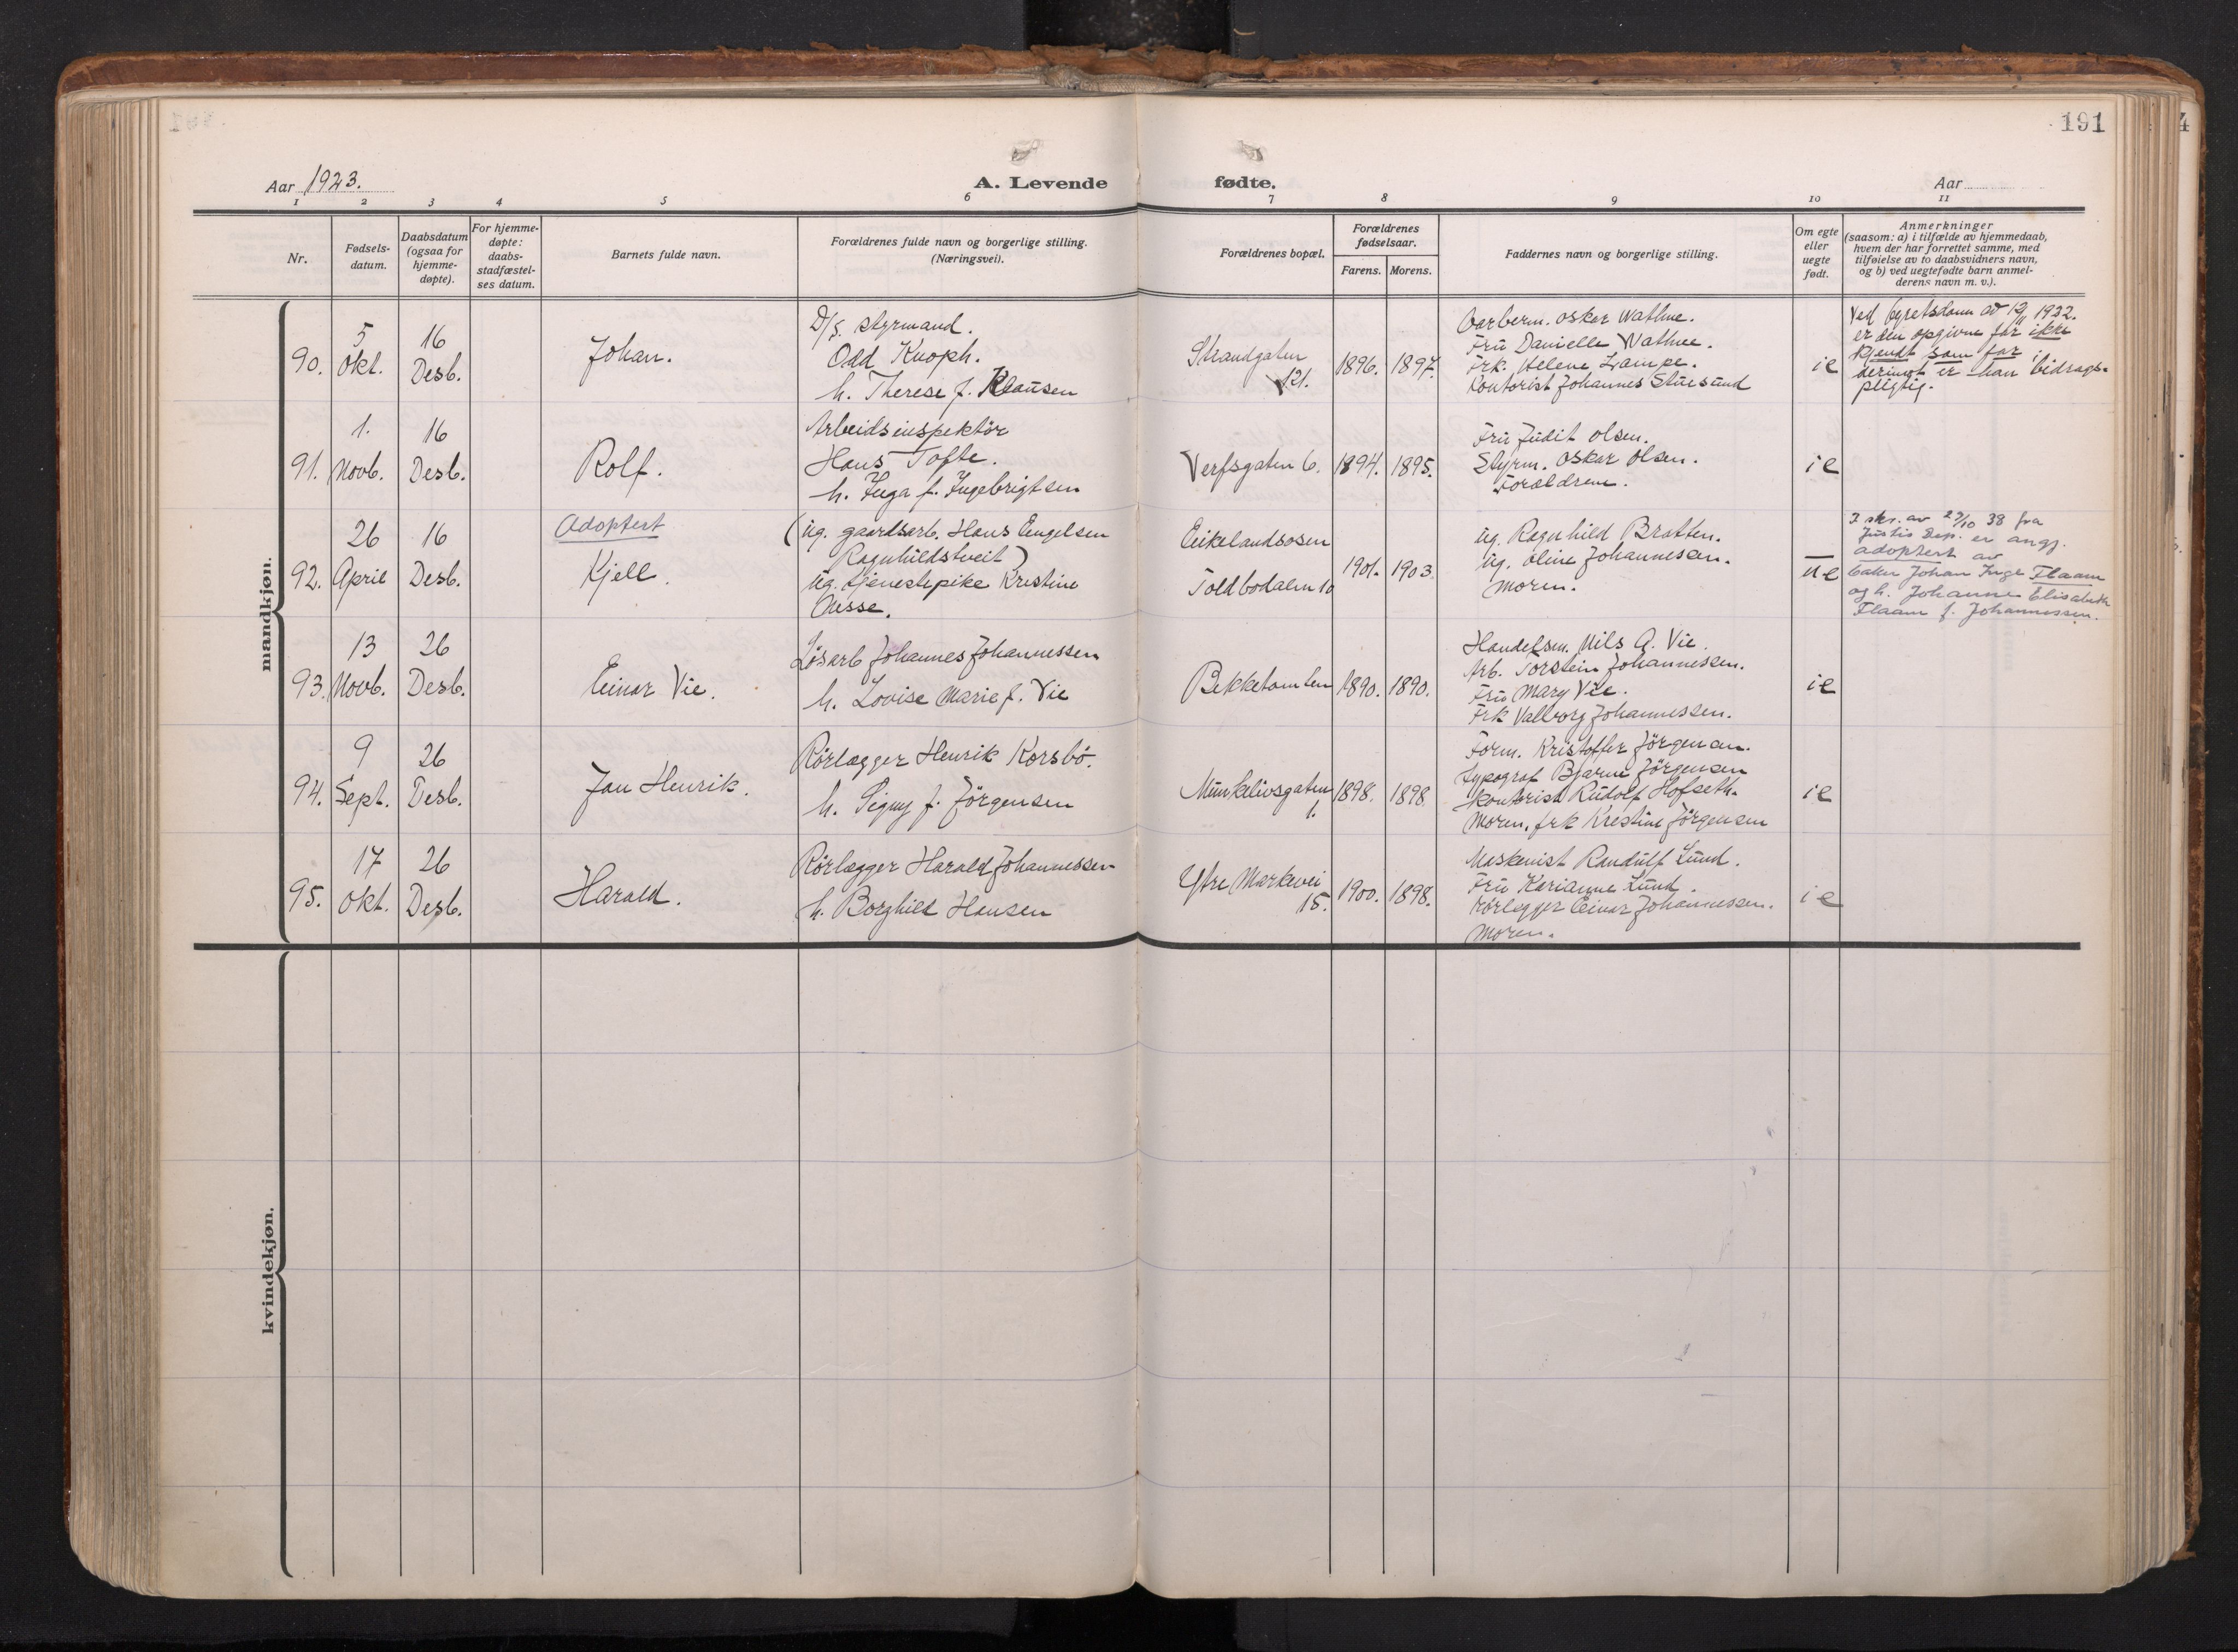 191
Aar 1923.
A. Levende fødte.
Aar
1 2 3 4 5 6 7 8 9 10 11
Nr.
Fødsels-
datum.
Daabsdatum
(ogsaa for
hjemme-
døpte).
For hjemme-
døpte:
daabs-
stadfæstel-
ses datum.
Barnets fulde navn.
Forældrenes fulde navn og borgerlige stilling.
(Næringsvei).
Forældrenes bopæl.
Forældrenes
fødselsaar.
Farens. Morens.
Faddernes navn og borgerlige stilling.
Om egte
eller
uegte
født.
Anmerkninger
(saasom: a) i tilfælde av hjemmedaab,
hvem der har forrettet samme, med
tilføielse av to daabsvidners navn,
og b) ved uegtefødte barn anmel-
derens navn m. v.).
mandkjøn.
90.
5
Okt.
16
Desb.
Johan.
D/S. styrmand.
Odd Knoph.
h. Therese f. Klausen
Strandgaten
121.
1896. 1897.
Oskar Wathne.
Fru Danielle Wathne.
Frk. Helene Lampe.
Kontorist Johannes Stuesund
ie
Ved byretsdom av 1932.
er den opgivne far ikke
kjendt som far,
derimot er han bidrags-
pligtig.
91.
1.
Novb.
16
Desb.
Rolf.
Arbeidsinspektør
Hans Tofte.
h. Inga f. Ingebrigtsen
Verfsgaten 6.
1894. 1895.
Fru Judit Olsen.
Styrm. Oskar Olsen.
Forældrene.
ie
92.
26
April
16
Desb.
Adoptert
Kjell.
(Ug. gaardsarb. Hans Engelsen
Ragnhildstveit)
Ug. tjenestepike Kristine
Æsse.
Eikelandsosen
Toldbodalm 10
1901. 1903.
Ug. Ragnhild Bratten.
Ug. Oline Johannesen.
Moren.
ue
I skr. av 27/10 38 fra
Justis Dep. er angj.
adoptert av
Johan Inge Flaam
og h. Johanne Elisabeth
Flaam f. Johannessen.
93.
13
Novb.
26
Desb.
Einar Vie.
Løsarb Johannes Johannessen
h. Lovise Marie f. Vie
Bekketomten
1890. 1890.
Handelsm. Nils A. Vie.
Arb. Torstein Johannessen.
Fru Mary Vie.
Frk Valborg Johannessen.
ie
94.
9
Sept.
26
Desb.
Jan Henrik.
Rørlægger Henrik Korsbö.
h. Signy f. Jörgensen
Munkelivsgaten
1.
1898. 1898.
Form. Kristoffer Jörgensen.
typograf Bjarne Jörgensen
kontorist Rudolf Hofseth.
Moren, frk Kristine Jörgensen
ie
95.
17
Okt.
26
Desb.
Harald.
Rørlægger Harald Johannessen
h. Borghild Hansen
Ytre Markevei
15.
1900. 1898.
Maskinist Randulf Lund.
Fru Karianne Lund.
rørlegger Einar Johannessen.
Moren.
ie
kvindekjøn.